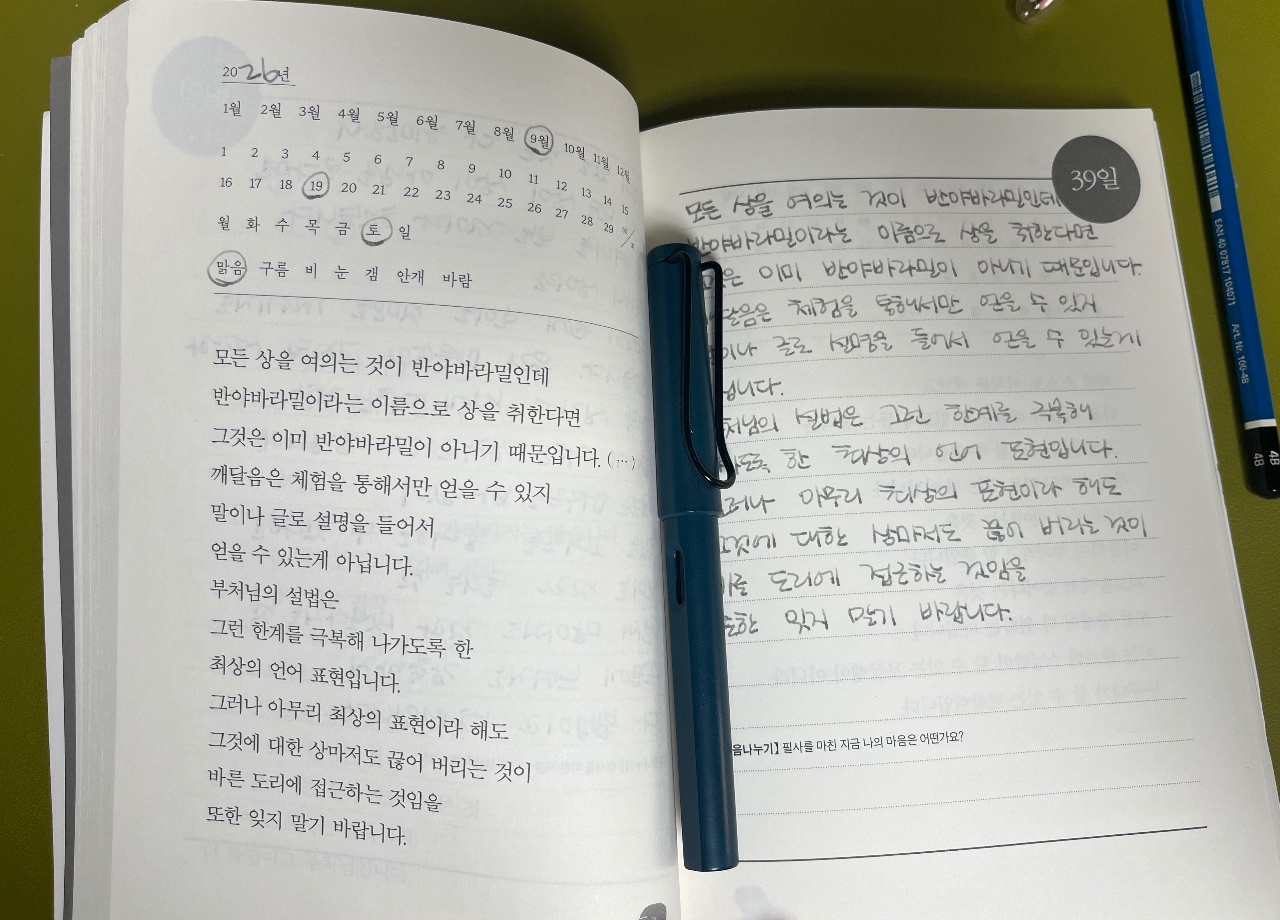 2026년
1월 2월 3월 4월 5월 6월 7월 8월 9월 10월 11월 12월
1 2 3 4 5 6 7 8 9 10 11 12 13 14 15
16 17 18 19 20 21 22 23 24 25 26 27 28 29 30/31
월 화 수 목 금 토 일
맑음 구름 비 눈 갬 안개 바람
모든 상을 여의는 것이 반야바라밀인데
반야바라밀이라는 이름으로 상을 취한다면
그것은 이미 반야바라밀이 아니기 때문입니다. (…)
깨달음은 체험을 통해서만 얻을 수 있지
말이나 글로 설명을 들어서
얻을 수 있는게 아닙니다.
부처님의 설법은
그런 한계를 극복해 나가도록 한
최상의 언어 표현입니다.
그러나 아무리 최상의 표현이라 해도
그것에 대한 상마저도 끊어 버리는 것이
바른 도리에 접근하는 것임을
또한 잊지 말기 바랍니다.
39일
모든 상을 여의는 것이 반야바라밀인데
반야바라밀이라는 이름으로 상을 취한다면
은 이미 반야바라밀이 아니기 때문입니다.
달음은 체험을 통해서만 얻을 수 있지
이나 글로 설명을 들어서 얻을 수 있는게
닙니다.
처님의 설법은 그런 한계를 극복해
가도록 한 최상의 언어 표현입니다.
러나 아무리 최상의 표현이라 해도
그것에 대한 상마저도 끊어 버리는 것이
바른 도리에 접근하는 것임을
또한 잊지 말기 바랍니다.
음나누기】 필사를 마친 지금 나의 마음은 어떤가요?
EAN 40 07817 104071 Art. Nr. 100-4B
4B
4B